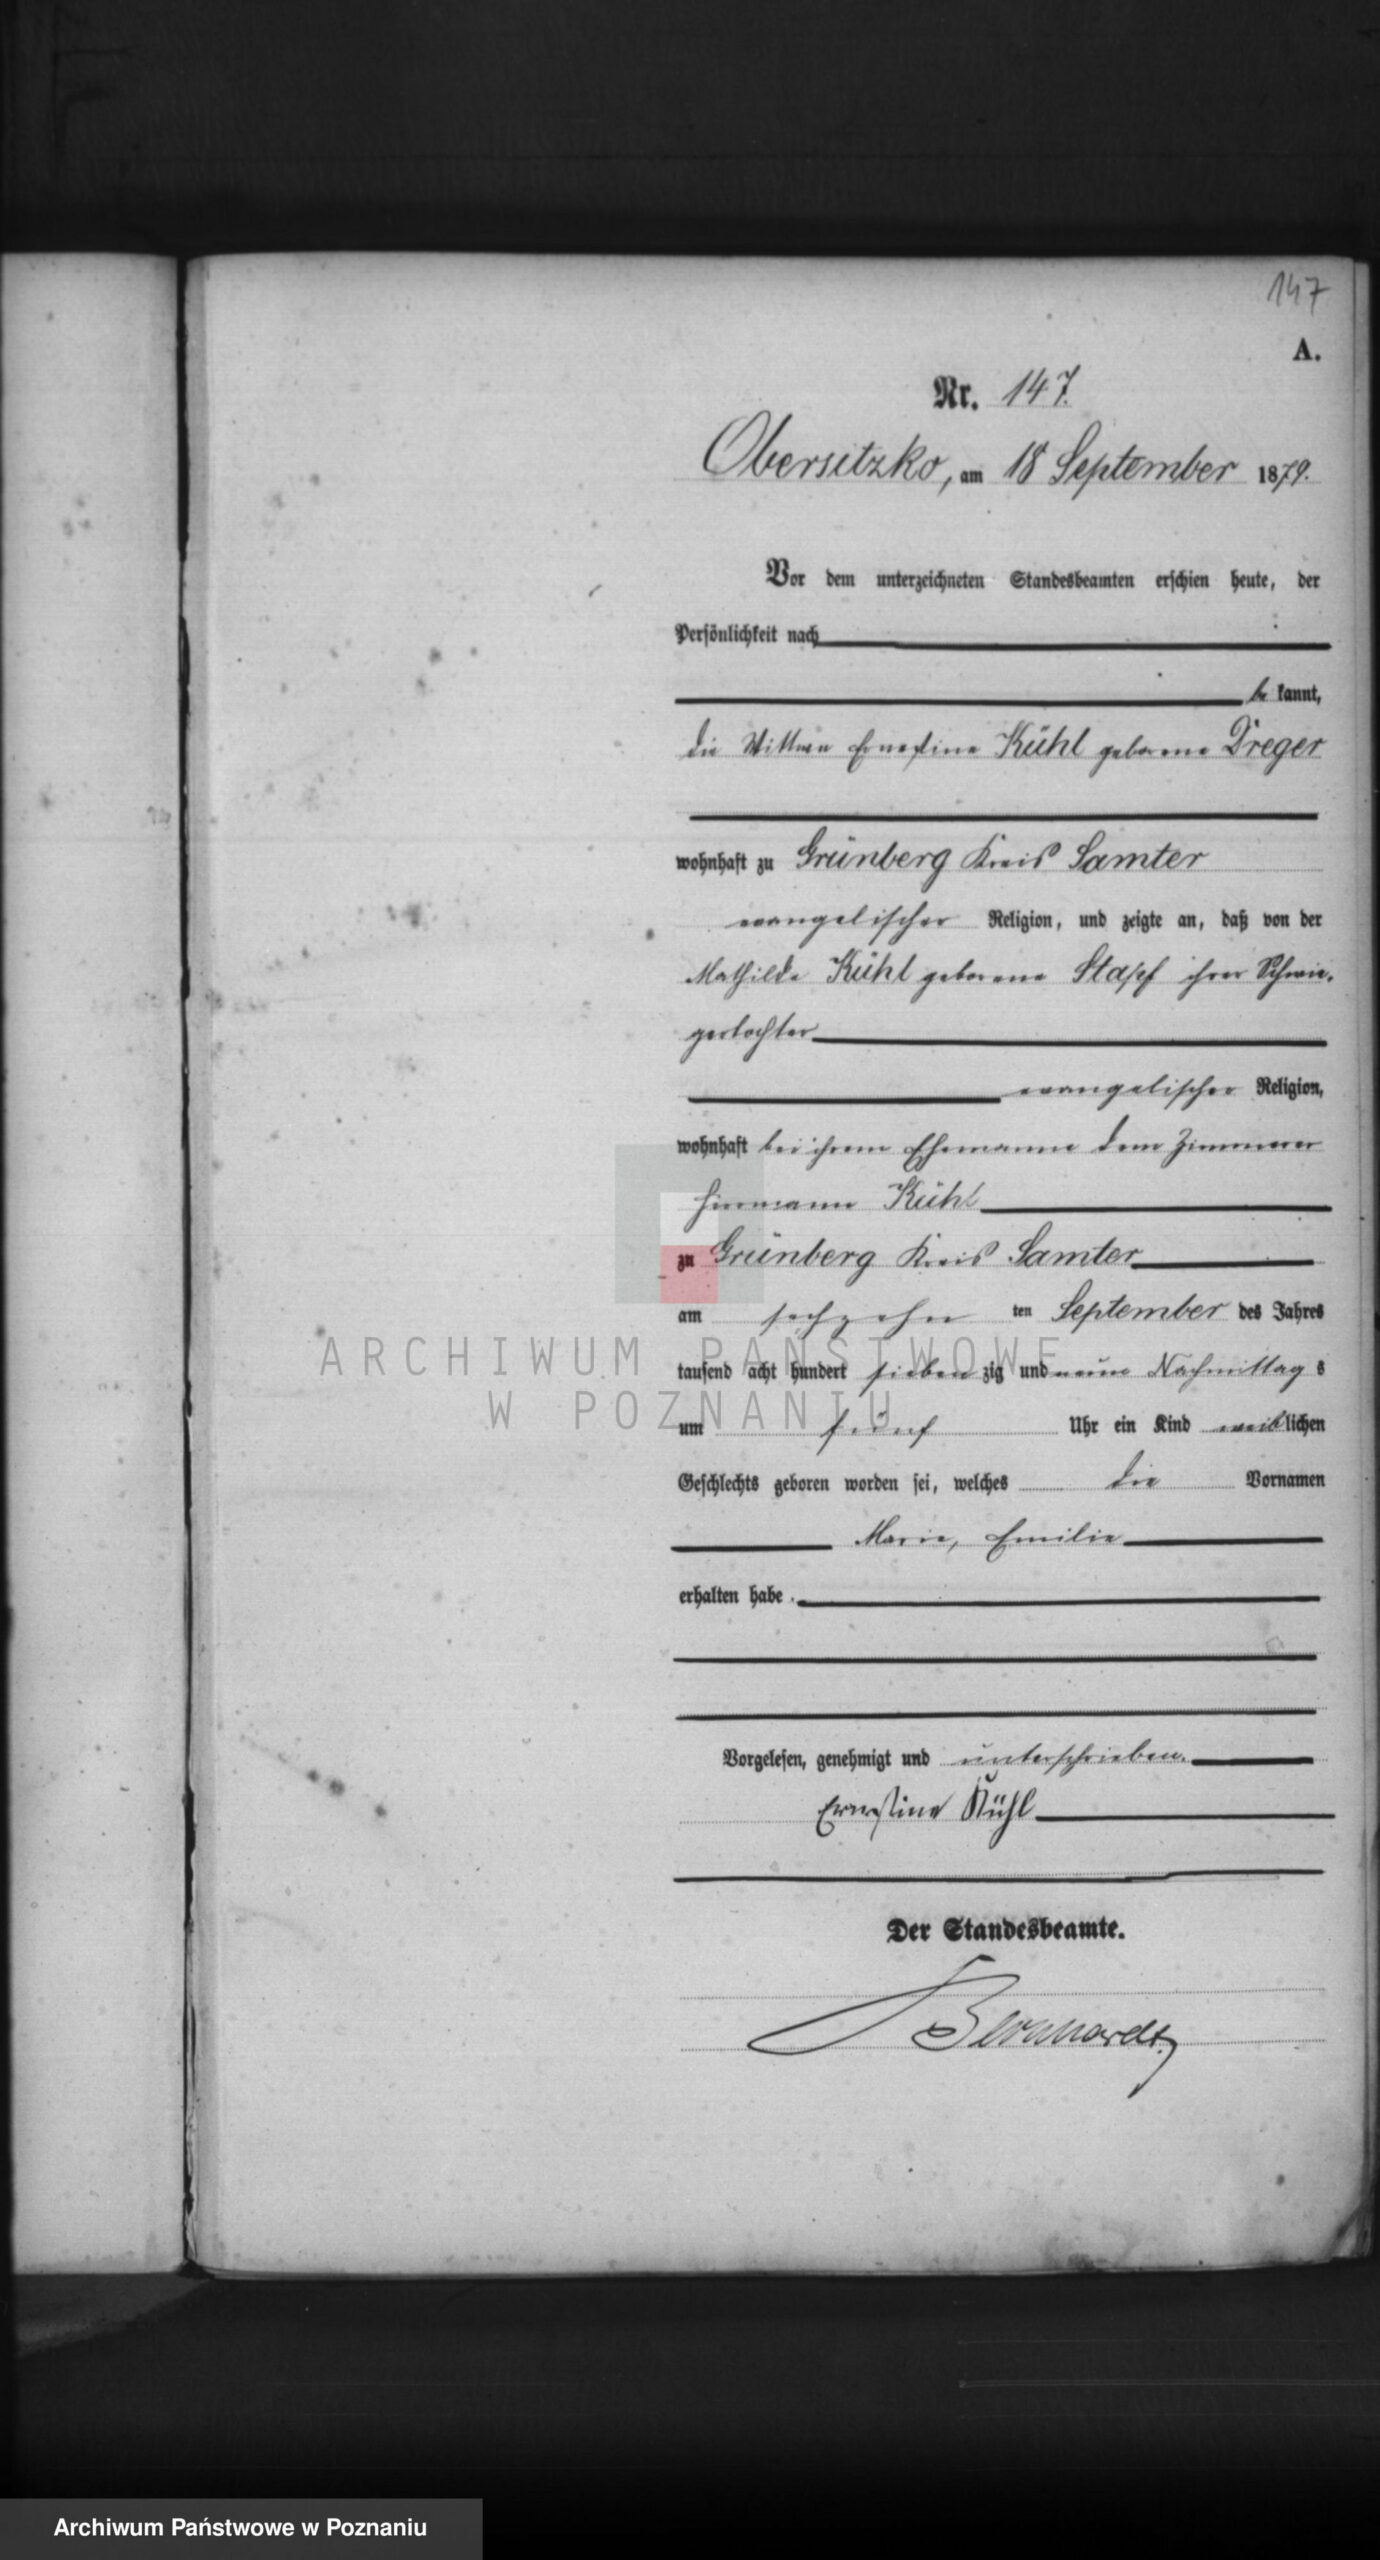 147
A.
Nr. 147.
Obersitzko, am 18 September 1879.
Vor dem unterzeichneten Standesbeamten erschien heute, der
Persönlichkeit nach
be kannt,
die Wittwe Ernestine Kühl geborene Dreger
wohnhaft zu Grünberg Kreis Samter
evangelischer Religion, und zeigte an, daß von der
Mathilde Kühl geborene Stapf ihrer Schwie-
gertochter
evangelischer Religion,
wohnhaft bei ihrem Ehemanne dem Zimmerer
Hermann Kühl
zu Grünberg Kreis Samter
am sechzehn ten September des Jahres
tausend acht hundert sieben zig und neun Nachmittag s
ARCHIWUM PAŃSTWOWE
W POZNANIU
um fünf Uhr ein Kind weiblichen
Geschlechts geboren worden sei, welches die Vornamen
Marie, Emilie
erhalten habe.
Vorgelesen, genehmigt und unterschrieben.
Ernestine Kühl
Der Standesbeamte.
Bernhardt
Archiwum Państwowe w Poznaniu